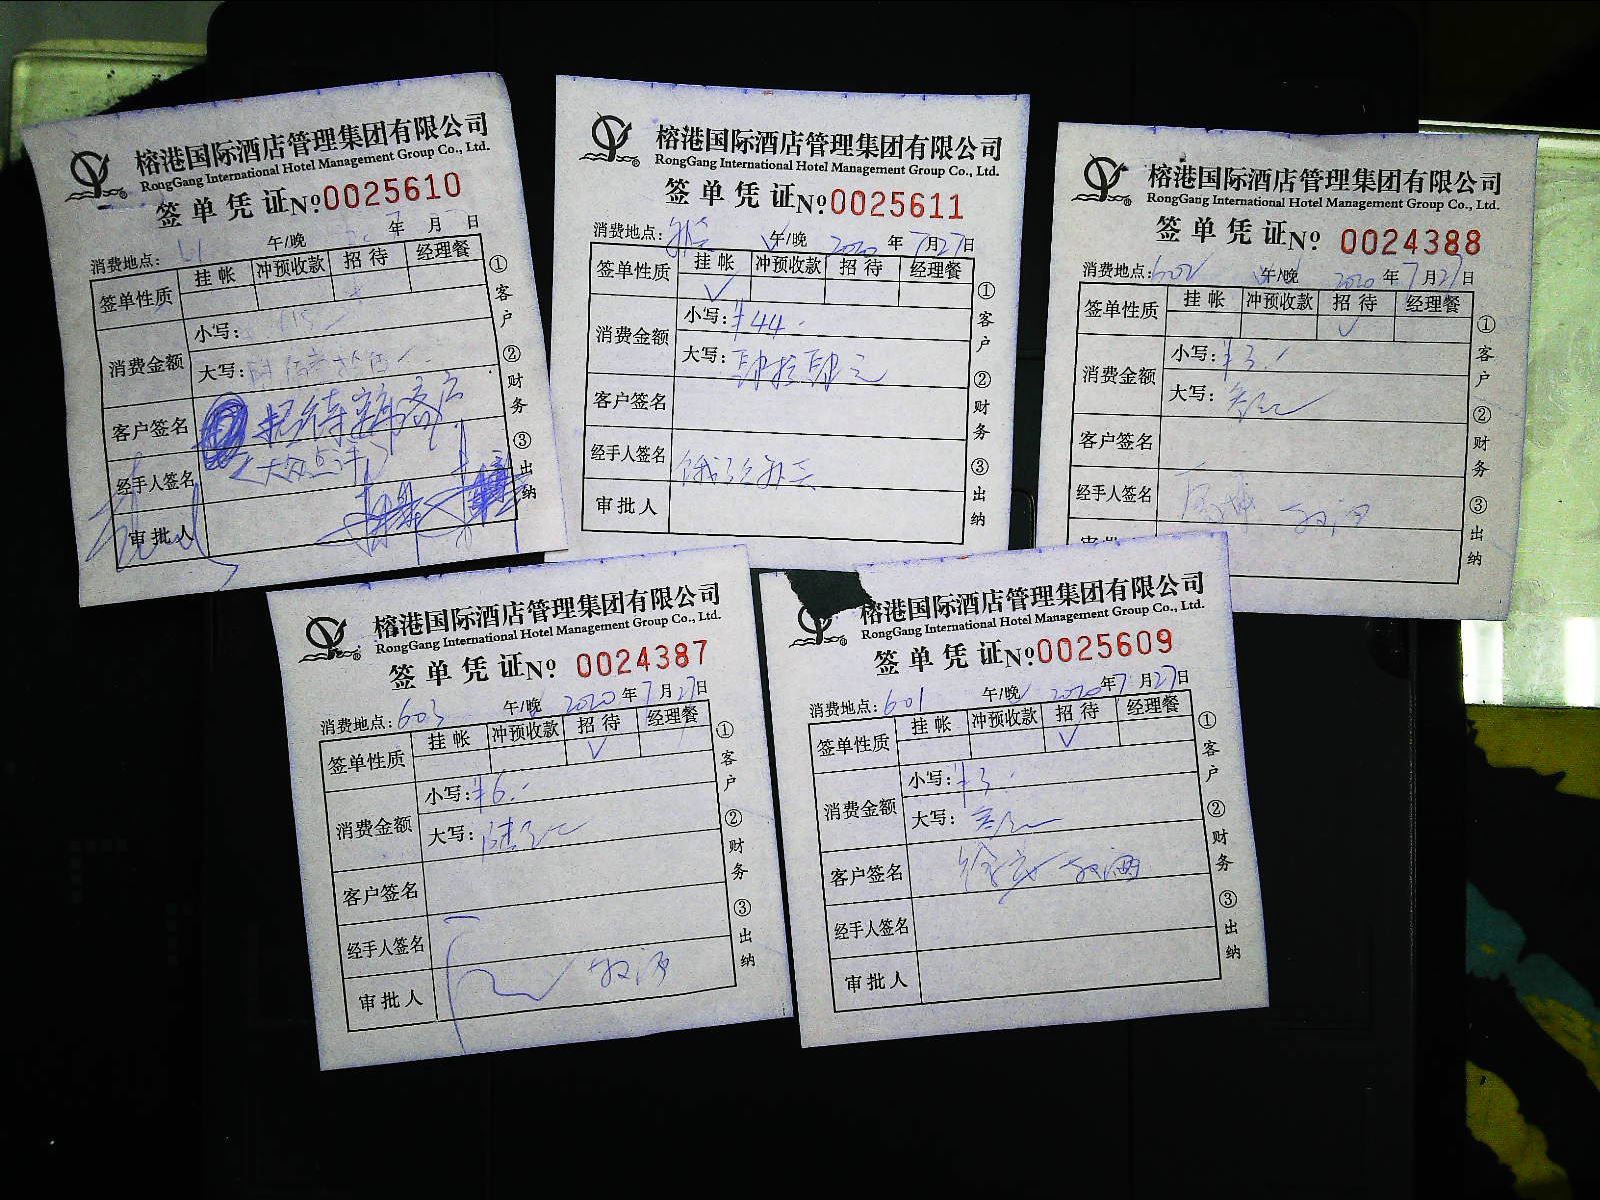 榕港国际酒店管理集团有限公司
RongGang International Hotel Management Group Co., Ltd.
签单凭证No.0025610
消费地点: 午/晚 年7月 日
签单性质 挂帐 冲预收款 招待 经理餐
消费金额 小写:
大写:
客户签名 招待
经手人签名 (大众点评)
审批人
①客户 ②财务 ③出纳
榕港国际酒店管理集团有限公司
RongGang International Hotel Management Group Co., Ltd.
签单凭证No.0025611
消费地点: 午/晚 2020年7月27日
签单性质 挂帐 冲预收款 招待 经理餐
✓
消费金额 小写:¥44.
大写:肆拾肆元
客户签名
经手人签名
审批人
①客户 ②财务 ③出纳
榕港国际酒店管理集团有限公司
RongGang International Hotel Management Group Co., Ltd.
签单凭证No. 0024388
消费地点:602 午/晚 2020年7月27日
签单性质 挂帐 冲预收款 招待 经理餐
✓
消费金额 小写:¥3.
大写:叁元
客户签名
经手人签名
①客户 ②财务 ③出纳
榕港国际酒店管理集团有限公司
RongGang International Hotel Management Group Co., Ltd.
签单凭证No. 0024387
消费地点:603 午/晚 2020年7月27日
签单性质 挂帐 冲预收款 招待 经理餐
✓
消费金额 小写:¥6.
大写:陆元
客户签名
经手人签名
审批人
①客户 ②财务 ③出纳
榕港国际酒店管理集团有限公司
RongGang International Hotel Management Group Co., Ltd.
签单凭证No.0025609
消费地点:601 午/晚 2020年7月27日
签单性质 挂帐 冲预收款 招待 经理餐
✓
消费金额 小写:¥3.
大写:叁元
客户签名
经手人签名
审批人
①客户 ②财务 ③出纳